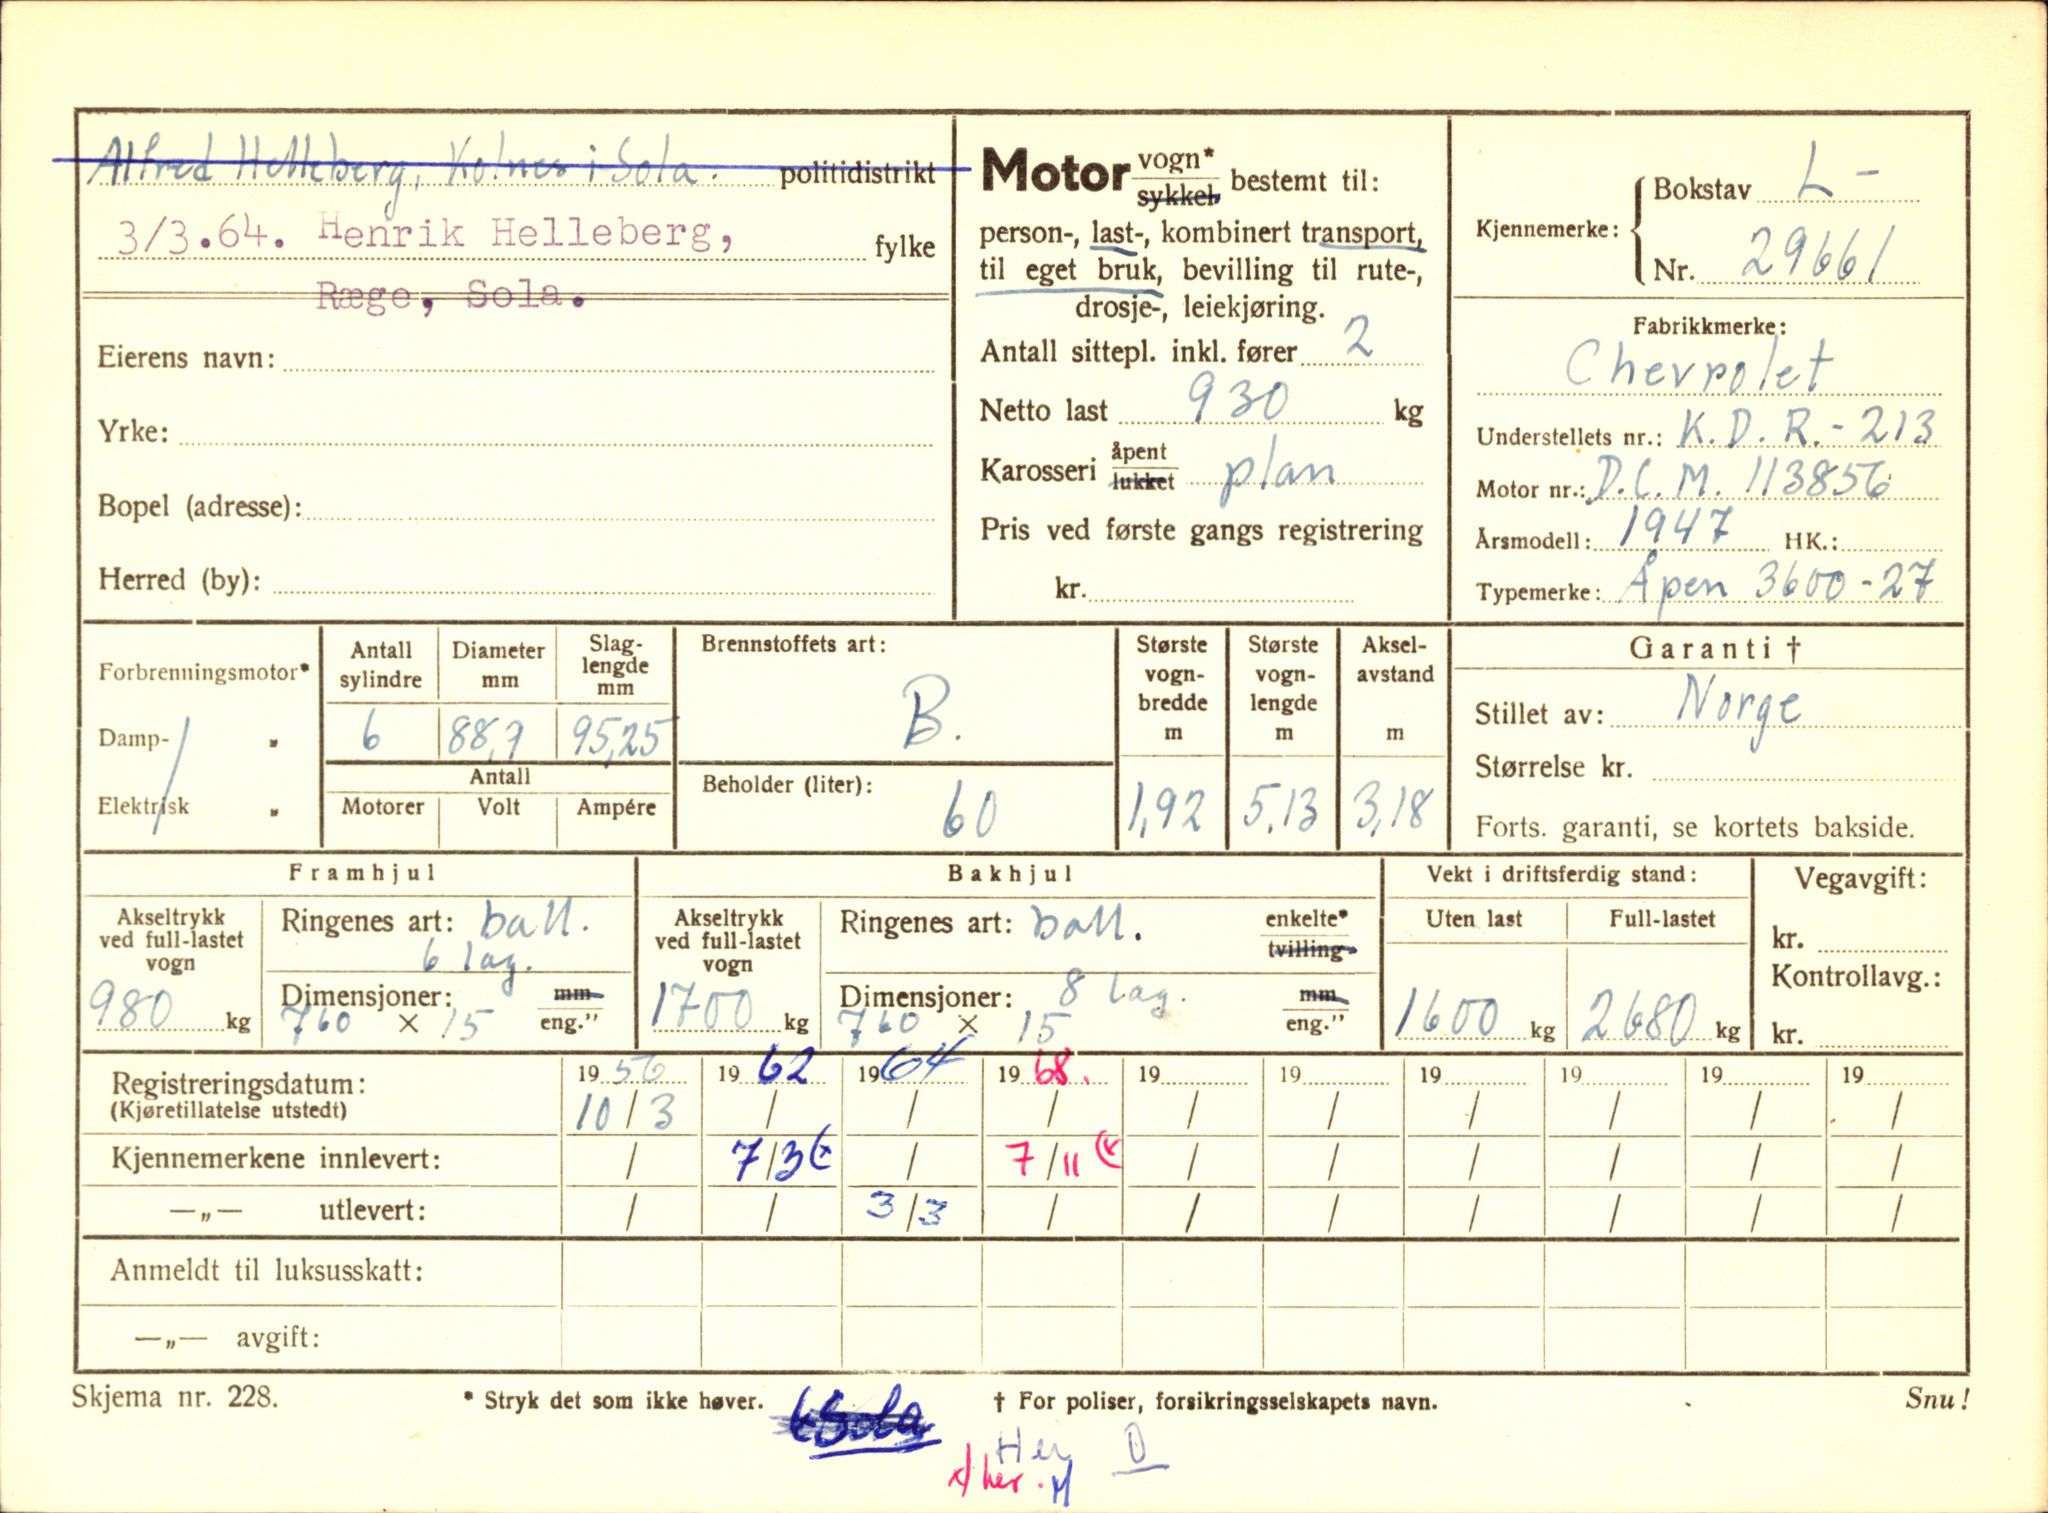 Alfred Helleberg, Kolnes i Sola. politidistrikt
3/3.64. Henrik Helleberg, fylke
Ræge, Sola.
Eierens navn:
Yrke:
Bopel (adresse):
Herred (by):
Motor vogn* sykkel bestemt til:
person-, last-, kombinert transport,
til eget bruk, bevilling til rute-,
drosje-, leiekjøring.
Antall sittepl. inkl. fører 2
Netto last 930 kg
Karosseri åpent lukket plan
Pris ved første gangs registrering
kr.
Kjennemerke: Bokstav L-
Nr. 29661
Fabrikkmerke:
Chevrolet
Understellets nr.: K.D.R.-213
Motor nr.: D.C.M. 113856
Årsmodell: 1947 HK.:
Typemerke: Åpen 3600-27
Forbrenningsmotor*
Damp- „
Elektrisk „
Antall sylindre
6
Diameter mm
88,9
Slag-lengde mm
95,25
Antall
Motorer Volt Ampére
Brennstoffets art:
B.
Beholder (liter):
60
Største vogn-bredde m
1,92
Største vogn-lengde m
5,13
Aksel-avstand m
3,18
Garanti †
Stillet av: Norge
Størrelse kr.
Forts. garanti, se kortets bakside.
Framhjul
Akseltrykk ved full-lastet vogn
980 kg
Ringenes art: ball.
6 lag.
Dimensjoner: mm
760 × 15 eng."
Bakhjul
Akseltrykk ved full-lastet vogn
1700 kg
Ringenes art: ball. enkelte* tvilling
Dimensjoner: 8 lag. mm
760 × 15 eng."
Vekt i driftsferdig stand:
Uten last Full-lastet
1600 kg 2680 kg
Vegavgift:
kr.
Kontrollavg.:
kr.
Registreringsdatum: 1956 1962 1964 1968. 19 19 19 19 19 19
(Kjøretillatelse utstedt) 10/3 / / / / / / / / /
Kjennemerkene innlevert: / 7/3 (x / 7/11 (x / / / / / /
—„— utlevert: / / 3/3 / / / / / / /
Anmeldt til luksusskatt:
—„— avgift:
Skjema nr. 228. * Stryk det som ikke høver. † For poliser, forsikringsselskapets navn. Snu!
Sola
Her 0
x/ her. x/